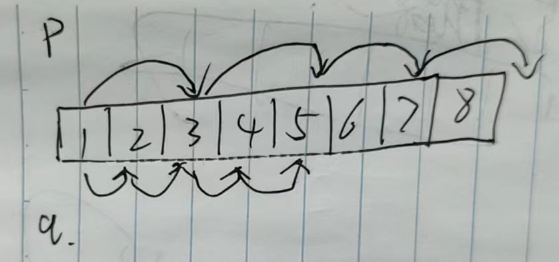 P
1 2 3 4 5 6 7 8
q.